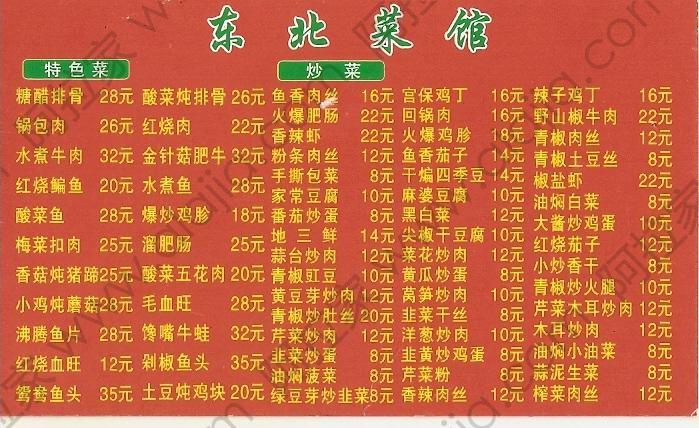 东北菜馆
特色菜
糖醋排骨 28元 酸菜炖排骨 26元
锅包肉 26元 红烧肉 22元
水煮牛肉 32元 金针菇肥牛 32元
红烧鳊鱼 20元 水煮鱼 28元
酸菜鱼 28元 爆炒鸡胗 18元
梅菜扣肉 25元 溜肥肠 25元
香菇炖猪蹄 25元 酸菜五花肉 20元
小鸡炖蘑菇 28元 毛血旺 28元
沸腾鱼片 28元 馋嘴牛蛙 32元
红烧血旺 12元 剁椒鱼头 35元
鸳鸯鱼头 35元 土豆炖鸡块 20元
炒菜
鱼香肉丝 16元 宫保鸡丁 16元 辣子鸡丁 16元
火爆肥肠 22元 回锅肉 16元 野山椒牛肉 22元
香辣虾 22元 火爆鸡胗 18元 青椒肉丝 12元
粉条肉丝 12元 鱼香茄子 14元 青椒土豆丝 8元
手撕包菜 8元 干煸四季豆 14元 椒盐虾 22元
家常豆腐 10元 麻婆豆腐 10元 油焖白菜 8元
番茄炒蛋 8元 黑白菜 12元 大酱炒鸡蛋 10元
地三鲜 14元 尖椒干豆腐 10元 红烧茄子 12元
蒜台炒肉 12元 菜花炒肉 12元 小炒香干 8元
青椒豇豆 10元 黄瓜炒蛋 8元 青椒炒火腿 10元
黄豆芽炒肉 12元 莴笋炒肉 10元 芹菜木耳炒肉 12元
青椒炒肚丝 20元 韭菜干丝 8元 木耳炒肉 12元
芹菜炒肉 12元 洋葱炒肉 10元 油焖小油菜 8元
韭菜炒蛋 8元 韭黄炒鸡蛋 8元 蒜泥生菜 8元
油焖菠菜 8元 芹菜粉 8元 榨菜肉丝 12元
绿豆芽炒韭菜 8元 香辣肉丝 12元